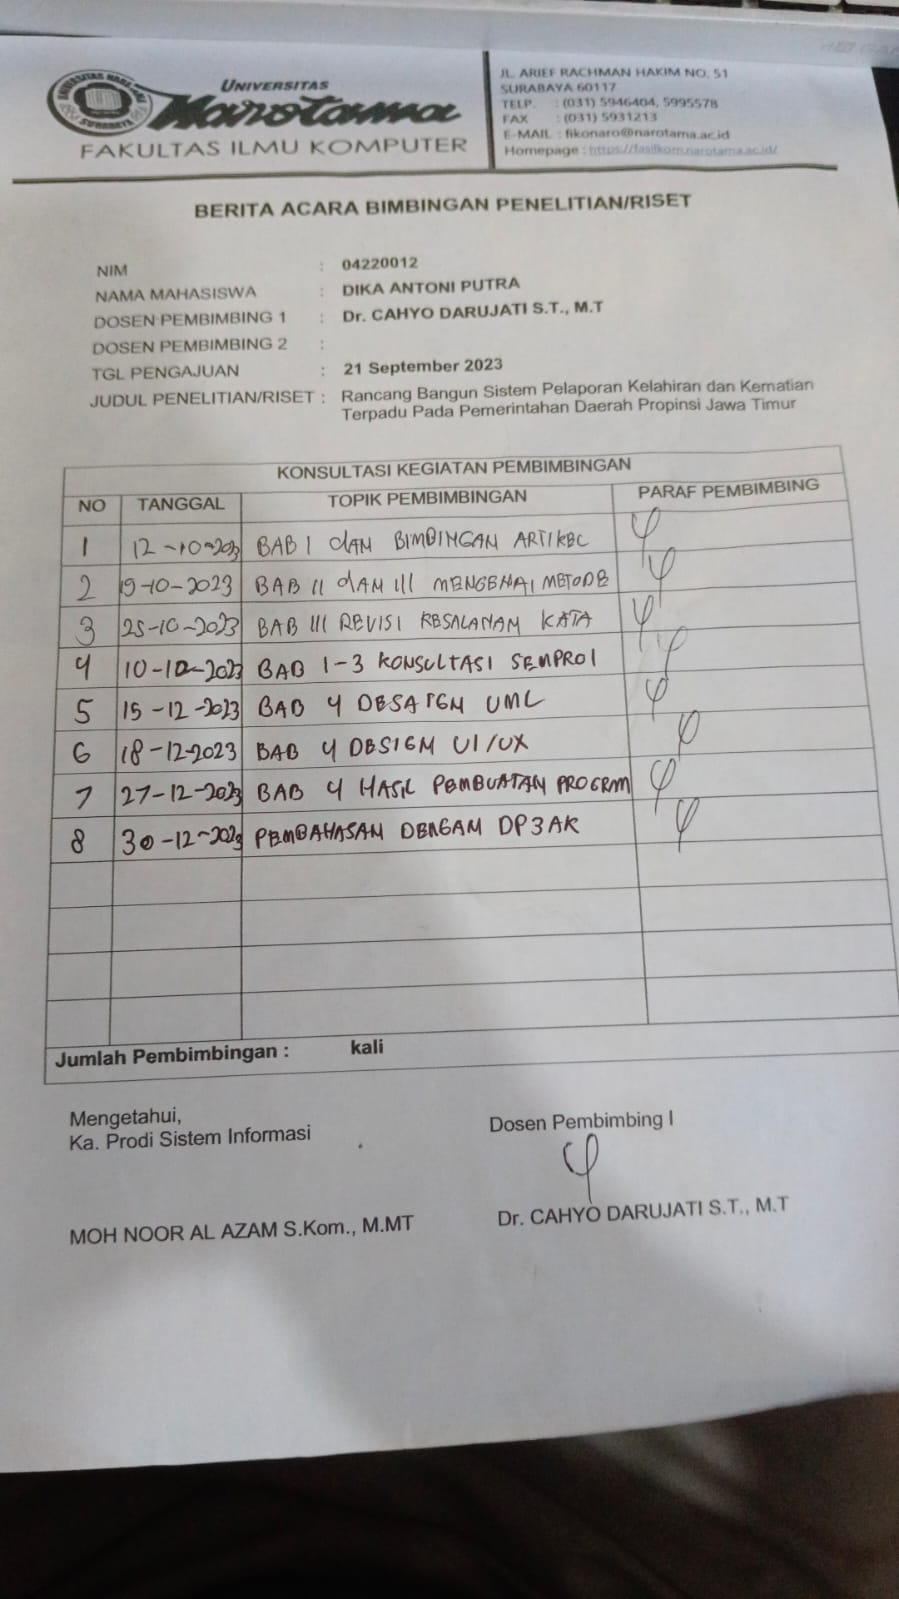 UNIVERSITAS
Narotama
FAKULTAS ILMU KOMPUTER
JL. ARIEF RACHMAN HAKIM NO. 51
SURABAYA 60117
TELP. : (031) 5946404, 5995578
FAX : (031) 5931213
E-MAIL : fikonaro@narotama.ac.id
Homepage : https://fasilkom.narotama.ac.id/
BERITA ACARA BIMBINGAN PENELITIAN/RISET
NIM : 04220012
NAMA MAHASISWA : DIKA ANTONI PUTRA
DOSEN PEMBIMBING 1 : Dr. CAHYO DARUJATI S.T., M.T
DOSEN PEMBIMBING 2 :
TGL PENGAJUAN : 21 September 2023
JUDUL PENELITIAN/RISET : Rancang Bangun Sistem Pelaporan Kelahiran dan Kematian
Terpadu Pada Pemerintahan Daerah Propinsi Jawa Timur
KONSULTASI KEGIATAN PEMBIMBINGAN
NO TANGGAL TOPIK PEMBIMBINGAN PARAF PEMBIMBING
1 12-10-2023 BAB I dAN BIMBINGAN ARTIKEL
2 19-10-2023 BAB II dAN III MENGENAI METODE
3 25-10-2023 BAB III REVISI KESALAHAN KATA
4 BAB 1-3 KONSULTASI SEMPRO1
5 15-12-2023 BAB 4 DESAIGN UML
6 18-12-2023 BAB 4 DESIGN UI/UX
7 27-12-2023 BAB 4 HASIL PEMBUATAN PROGRM
8 30-12-2023 PEMBAHASAN DENGAN DP3AK
Jumlah Pembimbingan : kali
Mengetahui,
Ka. Prodi Sistem Informasi
Dosen Pembimbing I
MOH NOOR AL AZAM S.Kom., M.MT
Dr. CAHYO DARUJATI S.T., M.T